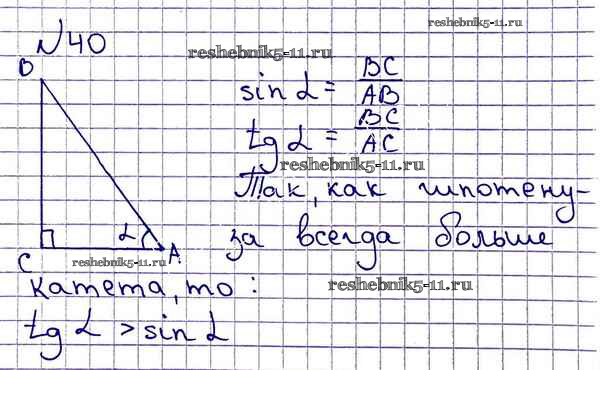 №40
reshebnik5-11.ru
reshebnik5-11.ru
B
sin α = BC/AB
tg α = BC/AC
reshebnik5-11.ru
Так, как гипотену-
за всегда больше
α
C
A
reshebnik5-11.ru
катета, то:
reshebnik5-11.ru
tg α > sin α